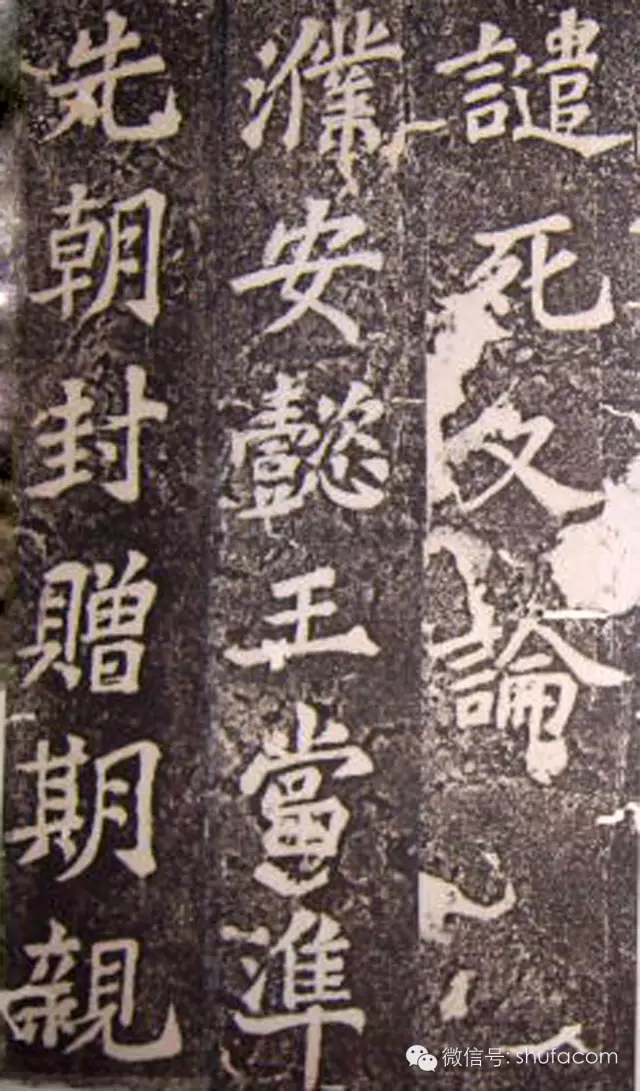 譴死又論
濮安懿王當準
先朝封贈期親
微信号: shufacom